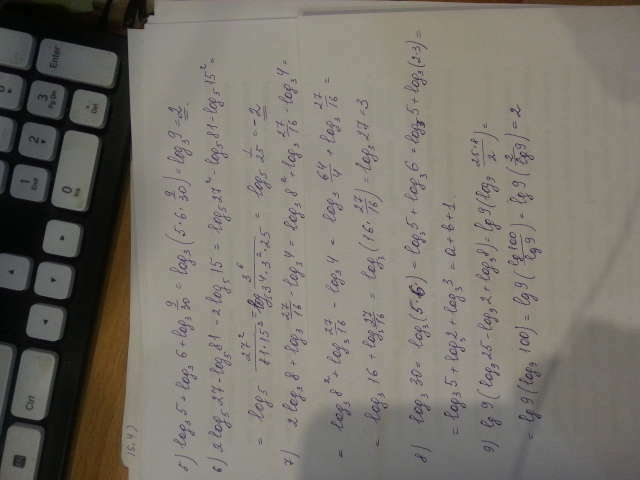 15.4)
5) log₃5 + log₃6 + log₃ 9/30 = log₃(5·6·9/30) = log₃9 = 2.
6) 2log₅27 - log₅81 - 2log₅15 = log₅27² - log₅81 - log₅15² =
= log₅ 27²/(81·15²) = log₅ 3⁶/(3⁴·3²·25) = log₅ 1/25 = -2
7) 2log₃8 + log₃ 27/16 - log₃4 = log₃8² + log₃ 27/16 - log₃4 =
= log₃8² + log₃ 27/16 - log₃4 = log₃ 64/4 + log₃ 27/16 =
= log₃16 + log₃ 27/16 = log₃(16·27/16) = log₃27 = 3
8) log₃30 = log₃(5·6) = log₃5 + log₃6 = log₃5 + log₃(2·3) =
= log₃5 + log₃2 + log₃3 = a + b + 1.
9) lg9(log₃25 - log₃2 + log₃8) = lg9(log₃ 25·8/2) =
= lg9(log₃100) = lg9(lg100/lg9) = lg9(2/lg9) = 2
Enter
Ctrl
3
PgDn
2
1
End
0
Ins
Del